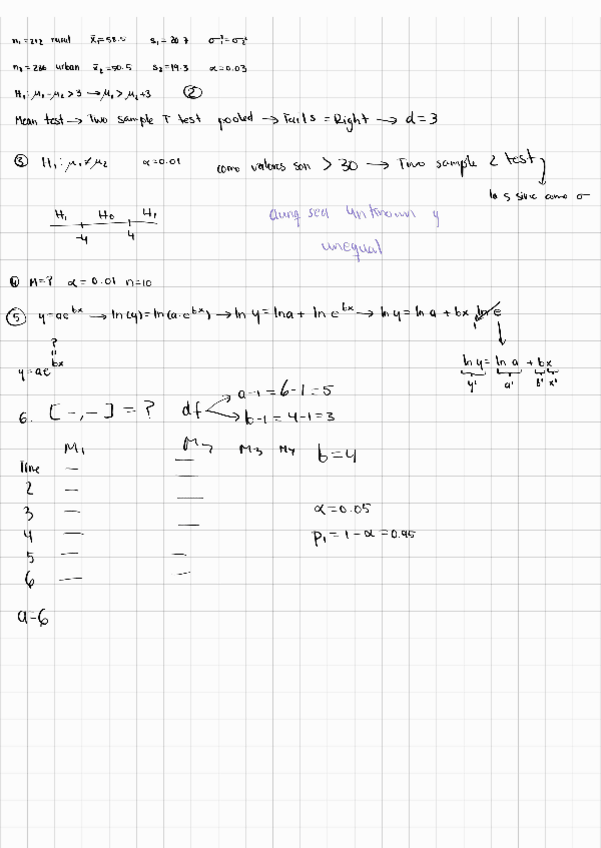 n₁=212 rural x̄₁=58. s₁=20.7 σ₁²=σ₂²
n₂=286 urban x̄₂=50.5 s₂=19.3 α=0.03
H₁: μ₁-μ₂>3 → μ₁>μ₂+3 ②
Mean test → Two sample T test pooled → Tails = Right → d=3
③ H₁: μ₁≠μ₂ α=0.01 como valores son > 30 → Two sample Z test
la s sirve como σ
H₁ H₀ H₁
-4 4
aunq sea unknown y
unequal
④ M=? α=0.01 n=10
⑤ y=ae^bx → ln(y)=ln(a·e^bx) → ln y = ln a + ln e^bx → ln y = ln a + bx ln e
1
?
=
y=ae^bx
ln y = ln a + bx
y' a' b' x'
6. [-,-] = ? df a-1=6-1=5
b-1=4-1=3
M₁ M₂ M₃ M₄ b=4
Time
2
3 α=0.05
4 p₁=1-α=0.95
5
6
a-6